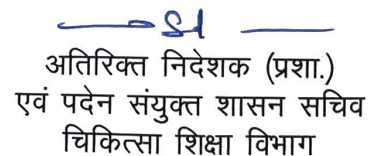 Sd
अतिरिक्त निदेशक (प्रशा.)
एवं पदेन संयुक्त शासन सचिव
चिकित्सा शिक्षा विभाग